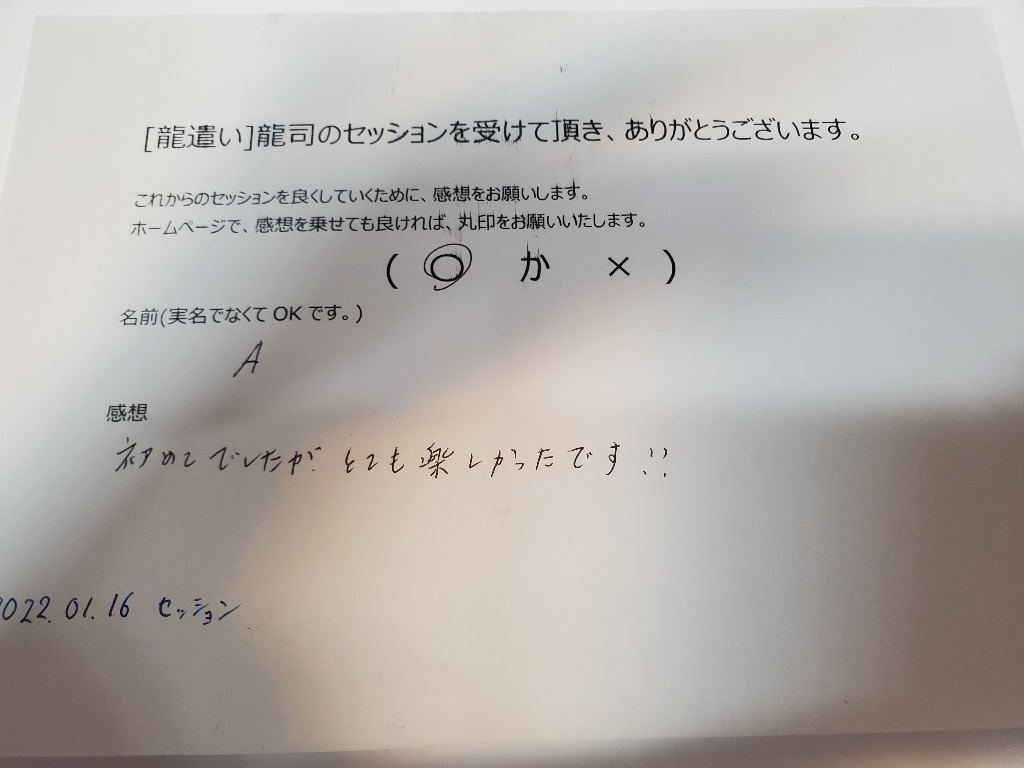 [龍遣い]龍司のセッションを受けて頂き、ありがとうございます。
これからのセッションを良くしていくために、感想をお願いします。
ホームページで、感想を乗せても良ければ、丸印をお願いいたします。
( ○ か × )
名前(実名でなくて OK です。)
A
感想
初めてでしたが とても楽しかったです!!
2022.01.16 セッション